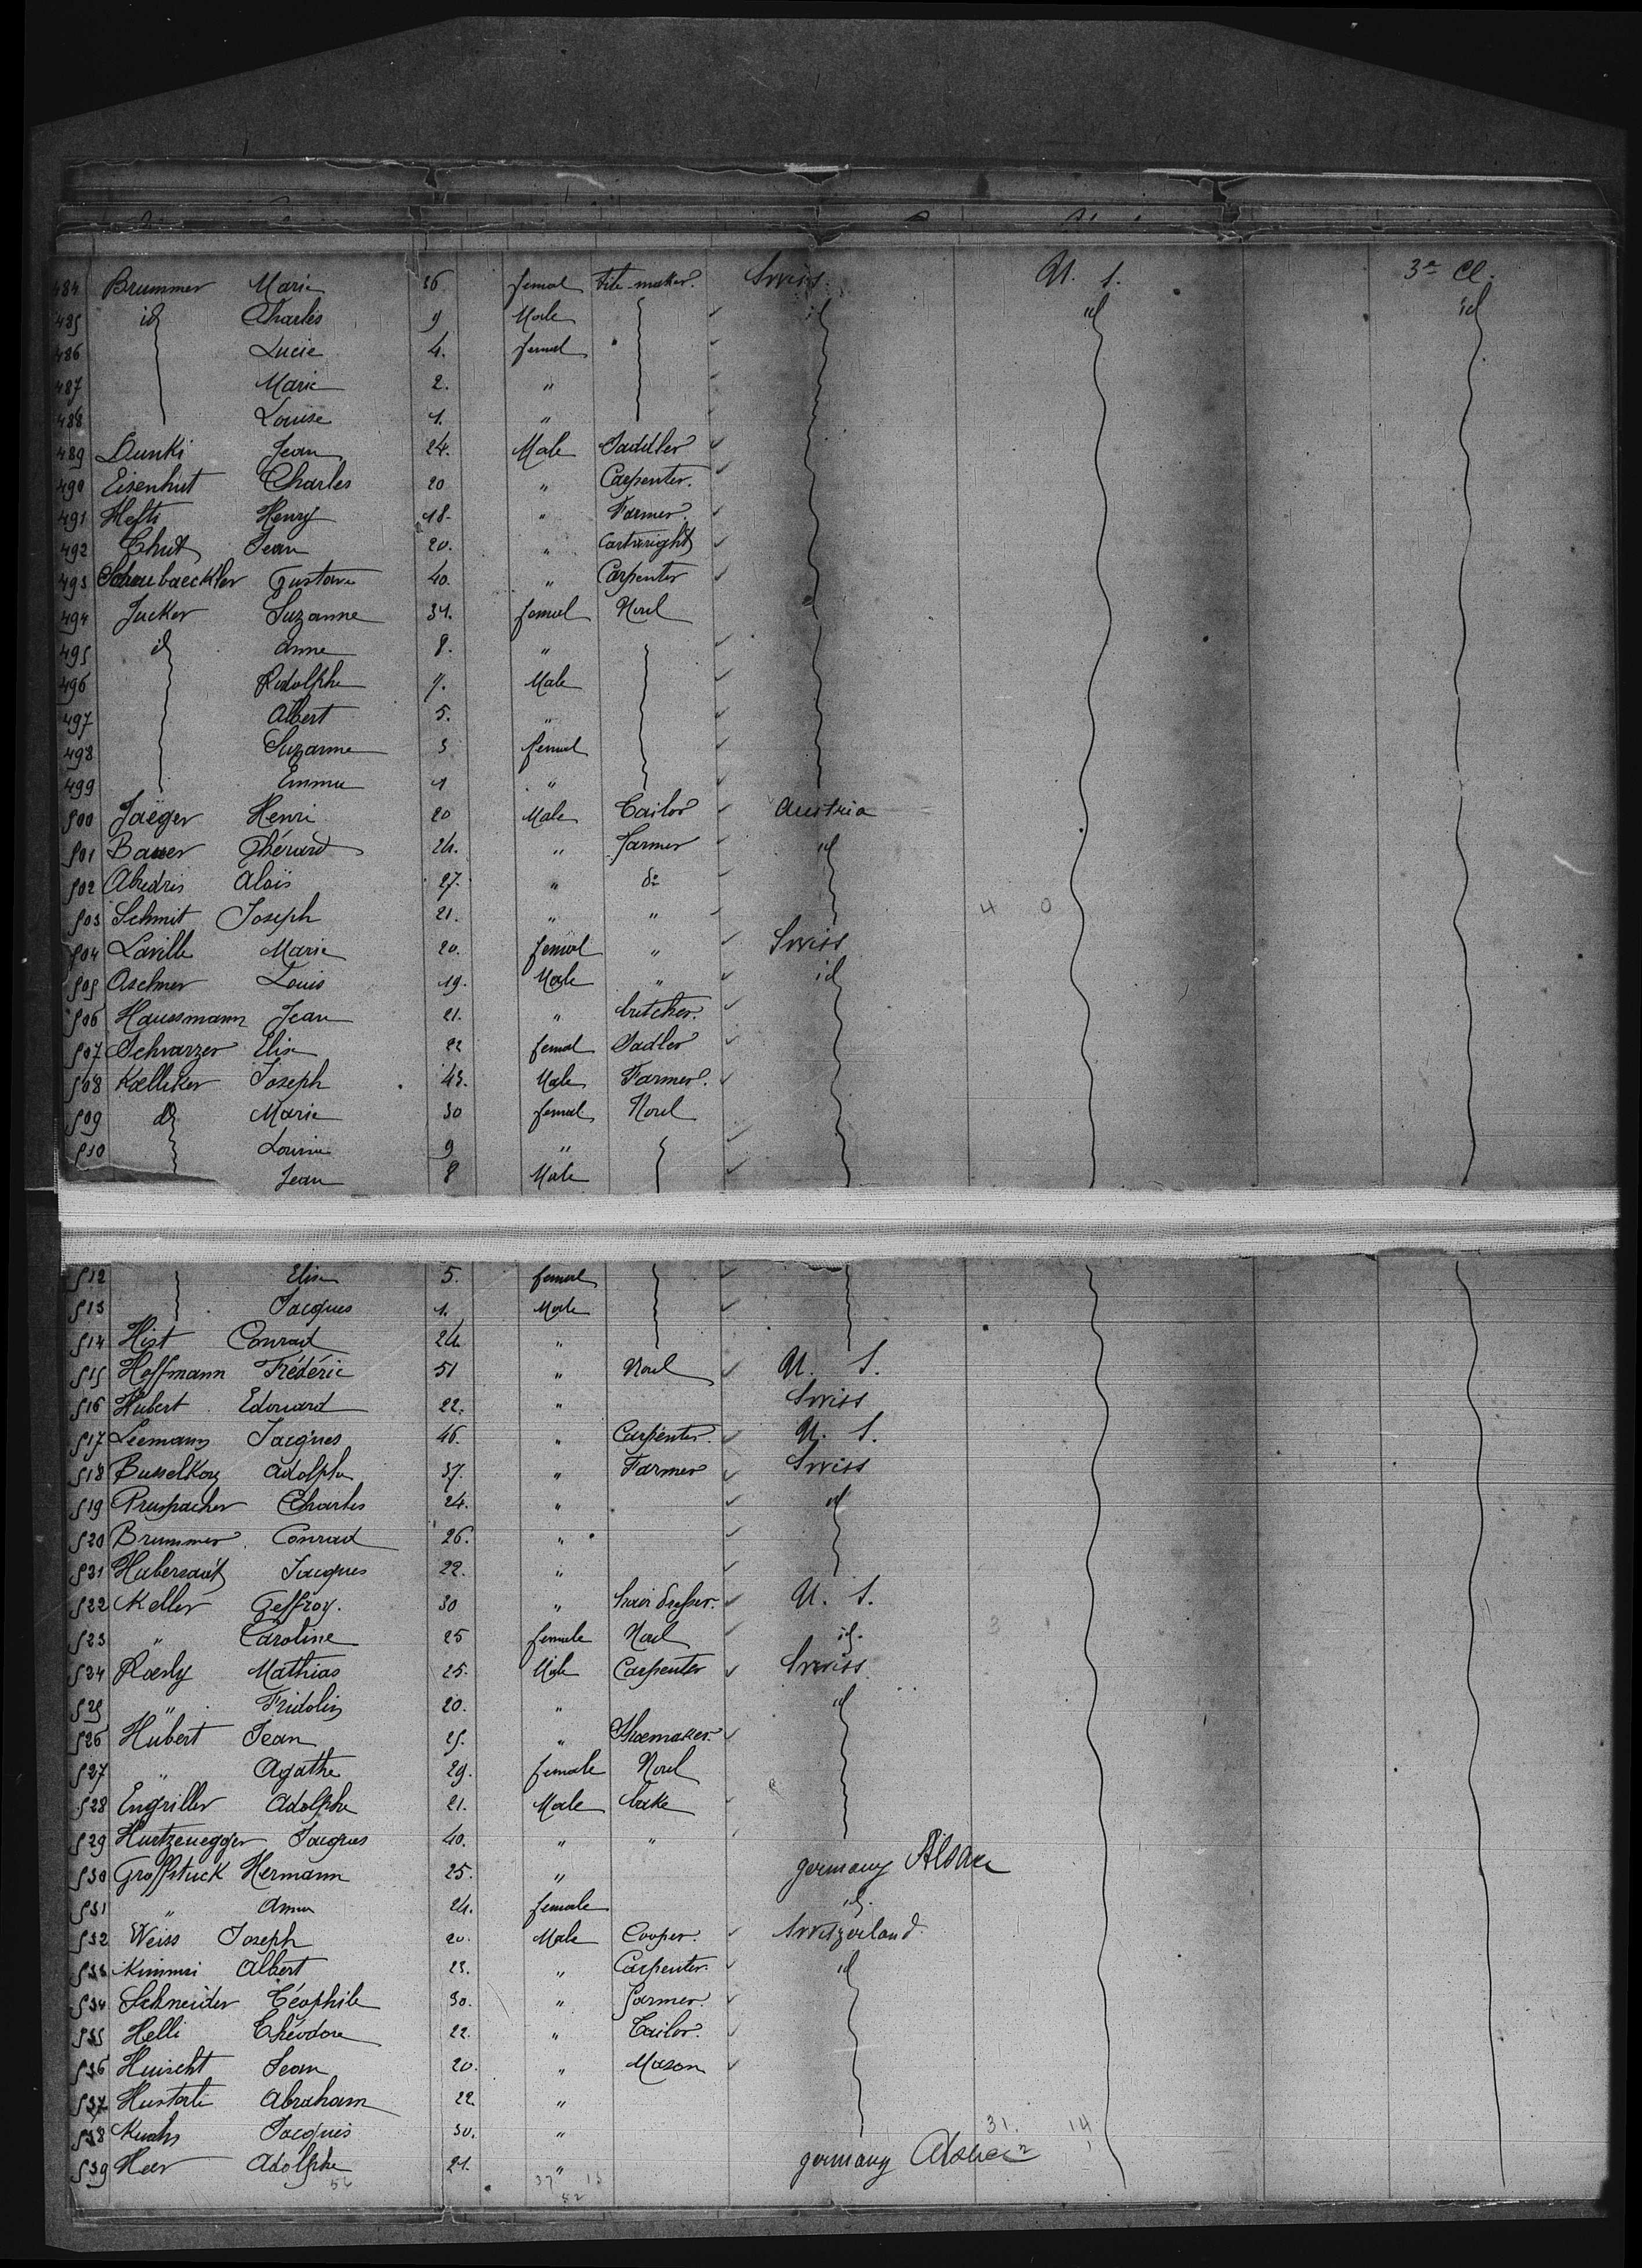 484 Brummer Marie 36 femal tile-maker. Swiss. U. S. 3e Cl.
485 id Charles 9 Male id id id
486 Lucie 4. femal
487 Marie 2. "
488 Louise 1. "
489 Dunki Jean 24. Male Saddler
490 Eisenhut Charles 20 " Carpenter.
491 Hefti Henry 18. " Farmer.
492 Jean 20. " Cartwright
493 Gustave 40. " Carpenter
494 Jucker Suzanne 31. femal Noul
495 id Anne 8. "
496 Rodolphe 7. Male
497 Albert 5. "
498 Suzanne 3 femal
499 Emma 1 "
500 Jaëger Henri 20 Male Tailor Austria
501 Bauer 24. " farmer id
502 Aloïs 27. " do
503 Schmit Joseph 21. " " 4 0
504 Laville Marie 20. femal " Swiss
505 Aschner Louis 19. Male " id
506 Haussmann Jean 21. " butcher.
507 Schwarzer Elise 22 femal Sadler
508 Kœlliker Joseph 43. Male Farmer.
509 id Marie 30 femal Noul
510 Louise 9 "
Jean 8 Male
512 Elise 5. femal
513 Jacques 1. Male
514 Hist Conrad 24 "
515 Hoffmann Frédéric 51 " Noul U. S.
516 Hubert Edouard 22. " Swiss
517 Leemann Jacques 46. " Carpenter. U. S.
518 Adolphe 37. " Farmer Swiss
519 Pruspacher Charles 24. " id
520 Brummer Conrad 26. "
521 Jacques 22. "
522 Keller Geffroy. 30 " hair dresser. U. S.
523 " Caroline 25 female Noul id. 3
524 Mathias 25. Male Carpenter Swiss
525 " Fridolin 20. " id
526 Hubert Jean 25. " Shoemaker.
527 " Agathe 29. female Noul
528 Engriller Adolphe 21. Male bake
529 Hurtzenegger Jacques 40. " "
530 Groffstuck Hermann 25. " germany Alsace
531 " Anna 24. female id.
532 Weiss Joseph 20. Male Cooper. Switzerland
533 Albert 23. " Carpenter. id
534 Schneider Téophile 30. " farmer.
535 Helli Théodore 22. " Tailor.
536 Jean 20. " Mason
537 Abraham 22 "
538 Jacques 30. " 31. 14
539 Heer Adolphe 21. " germany